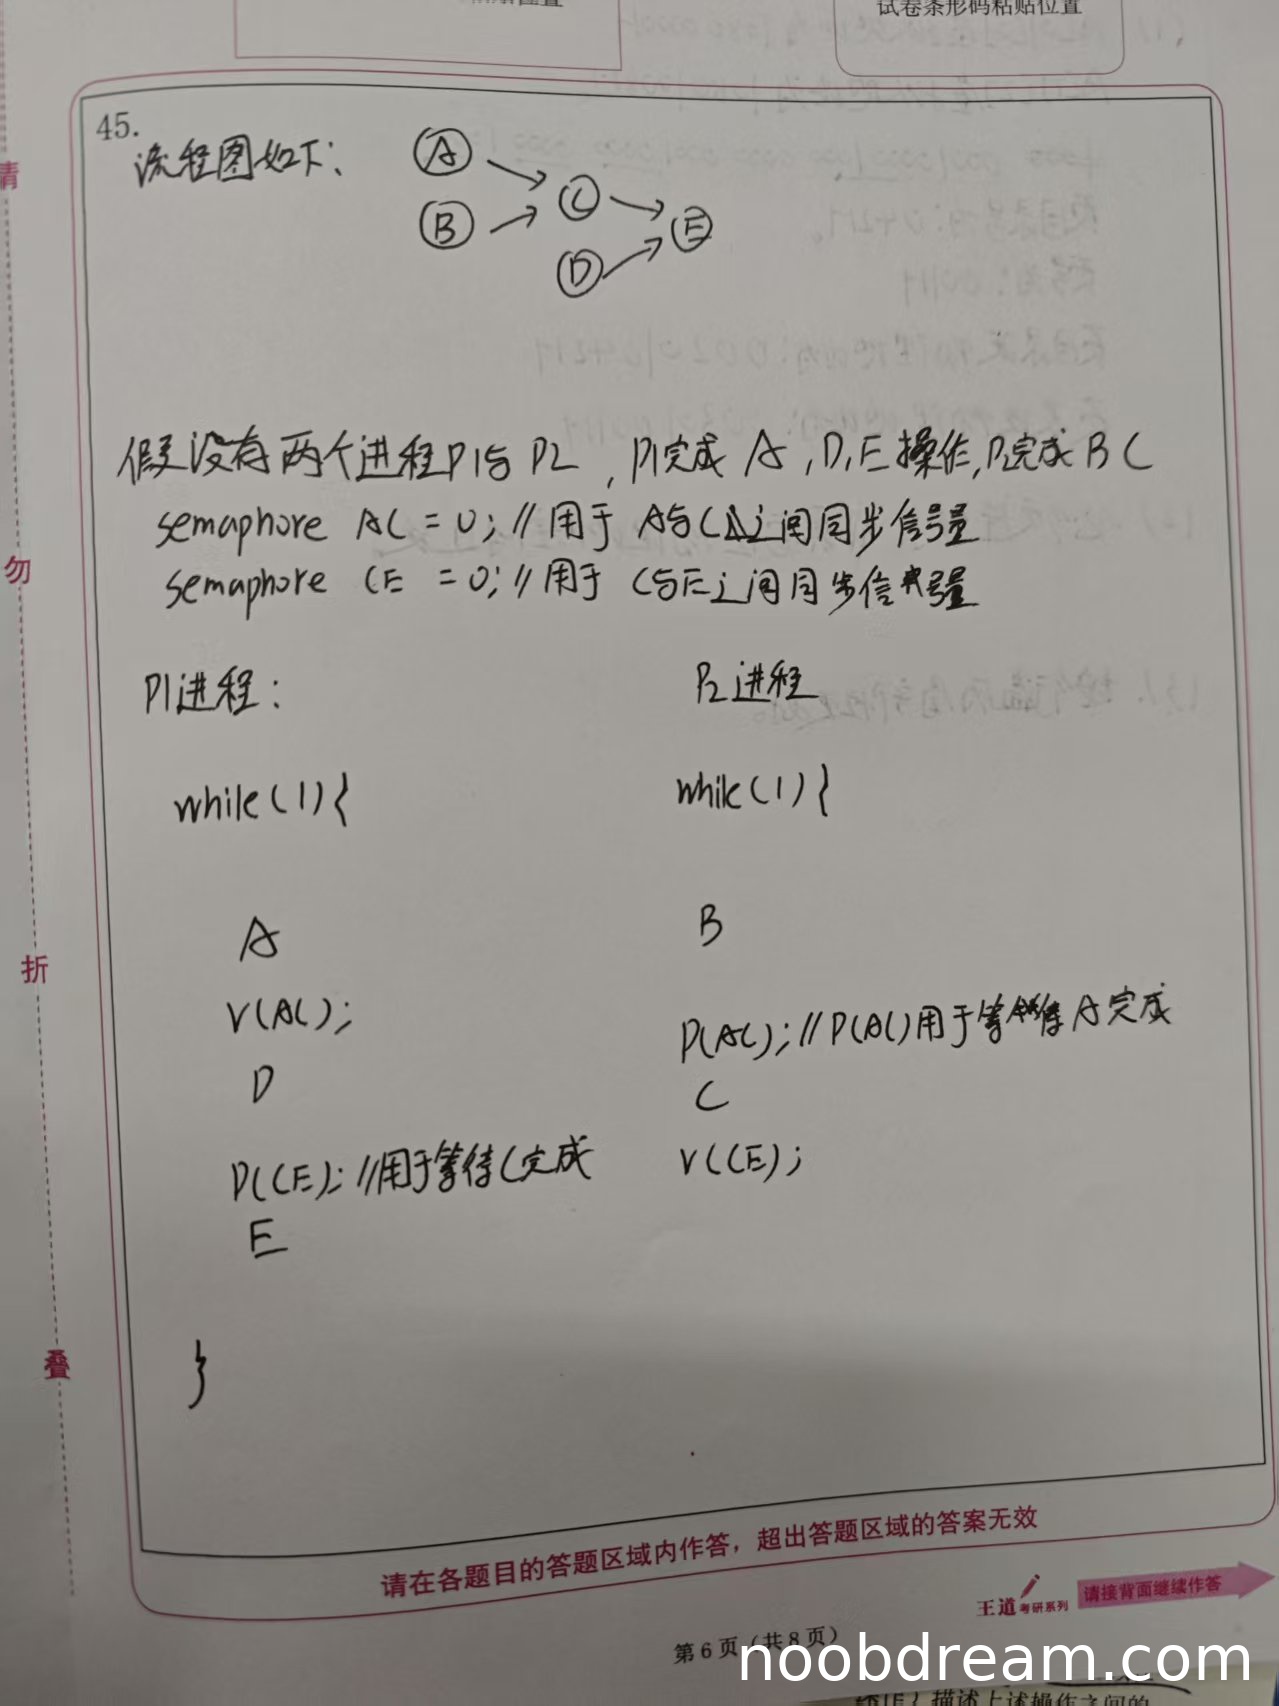 试卷条形码粘贴位置
45.
流程图如下：
A
B
C
D
E
假设有两个进程P1与P2，P1完成A,D,E操作,P2完成BC
semaphore AC = 0; // 用于A与C之间同步信号量
semaphore CE = 0; // 用于C与E之间同步信号量
P1进程：
P2进程
while(1){
while(1){
A
B
V(AC);
P(AC); // P(AC)用于等待A完成
D
C
P(CE); //用于等待C完成
V(CE);
E
}
请
勿
折
叠
请在各题目的答题区域内作答，超出答题区域的答案无效
王道考研系列
请接背面继续作答
第6页（共8页）
noobdream.com
描述上述操作之间的